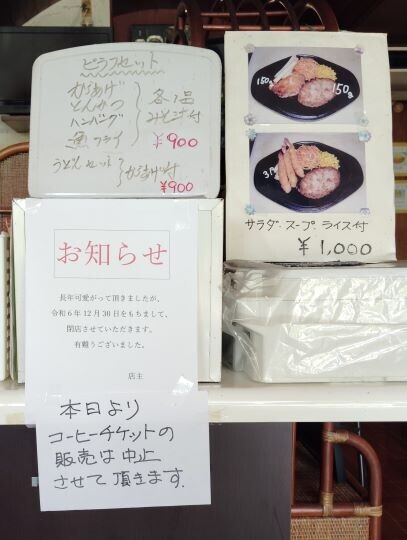 ピラフセット
からあげ
とんかつ
ハンバーグ
魚フライ
各1品
みそ汁付
¥900
うどんセット
からあげ付
¥900
150g
150g
サラダ・スープ・ライス付
¥1,000
お知らせ
長年可愛がって頂きましたが、
令和6年12月30日をもちまして、
閉店させていただきます。
有難うございました。
店主
本日より
コーヒーチケットの
販売は中止
させて頂きます.